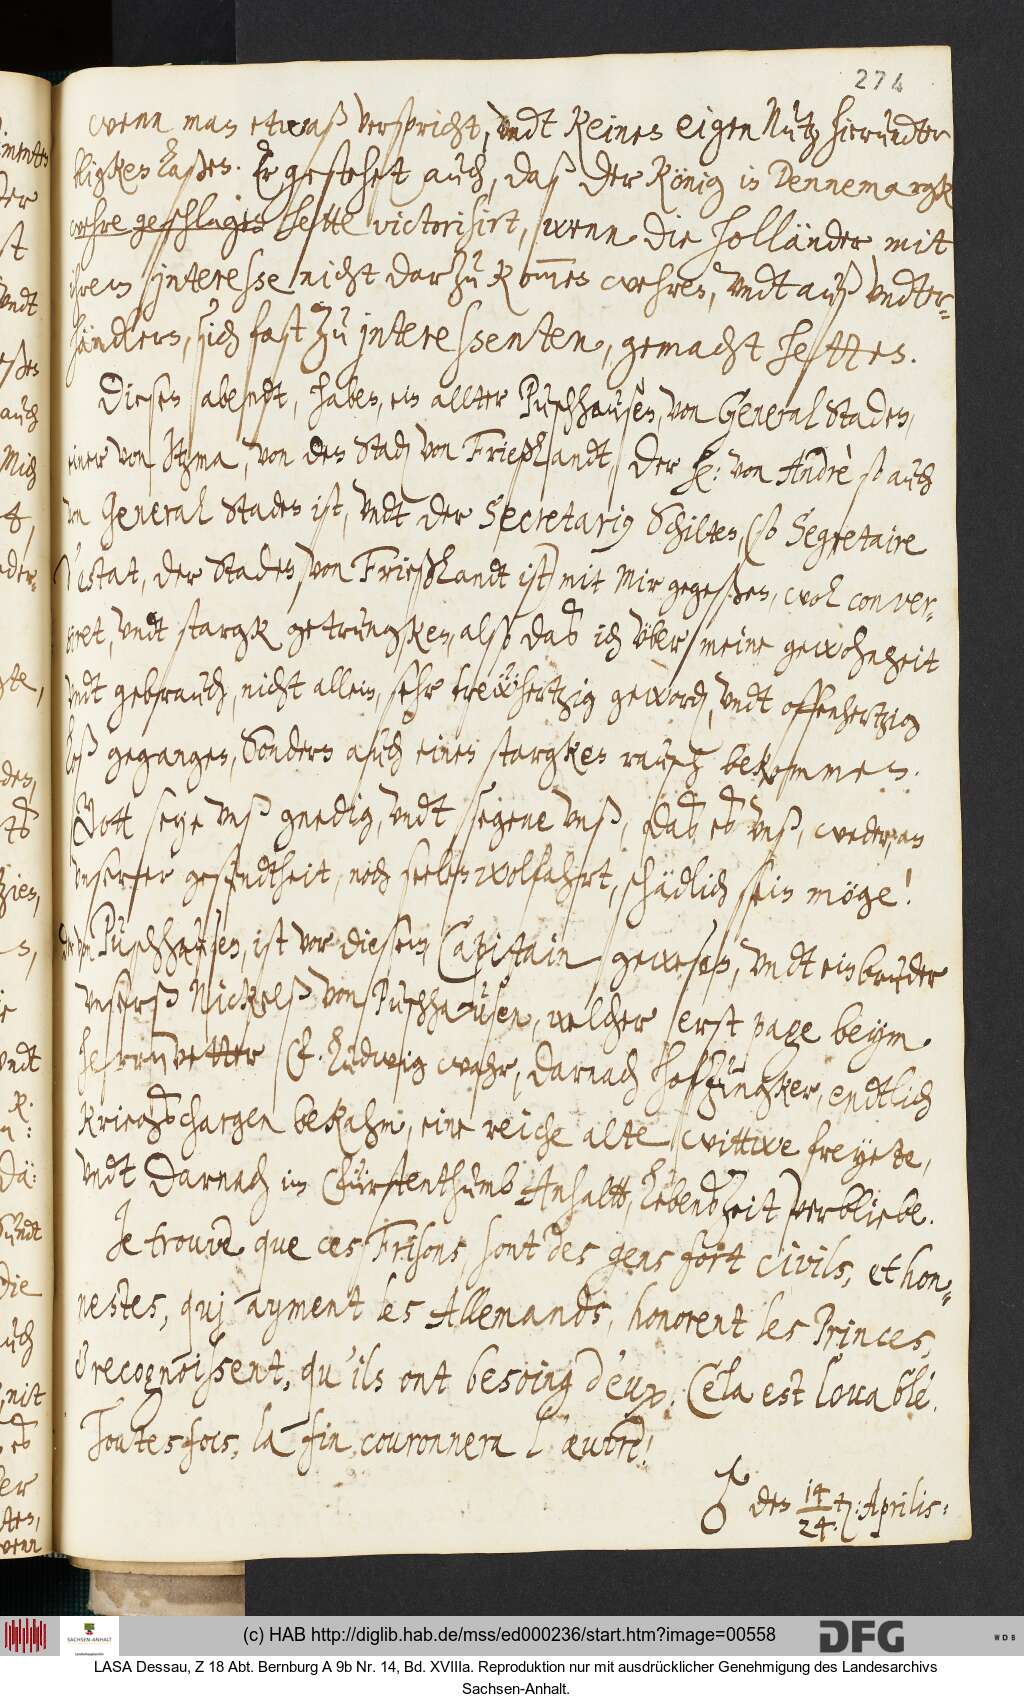 274
wenn man etwaß verspricht, vndt keines eigen Nutz hierundter
blicken laßen. Er gestehet auch, daß der König in Dennemargk
wehre geschlagen hette victorisirt, wenn die Holländer mit
ihrem interesse nicht darzu kommen wehren, vndt auß vndter-
händlern, sich fast zu interessenten, gemacht hetten.
Diesen abendt, haben, ein allter Puschhausen, von General Staden,
einer von Itzma, von den Stad von Frießlandt, der H: von André so auch
von General Staden ist, vndt der Secretarius Schilten, (so Segretaire
d'estat, der Staden von Frießlandt ist) mit Mir gegeßen, wol conver-
siret, vndt stargk getrungken, alß daß ich vber meine gewohnheit
vndt gebrauch, nicht allein, sehr trewhertzig geword, vndt offenhertzig
loß gegangen, Sondern auch einen stargken rausch bekommen.
Gott seye vnß gnedig, vndt segene vnß, daß es vnß, weder, an
vnserer gesundtheit, noch seelen wolfahrt, schädlich sein möge!
Der von Puschhausen, ist vor diesem Capitain, gewesen, vndt ein bruder
vnserß Nickelß von Puschhausen, welcher erst page beym
herrn vetter F. Ludwig wahr, darnach Hofjungker, endtlich
kriegßchargen bekahm, eine reiche alte wittwe freyete,
vndt darnach im Fürstenthumb Anhaltt, Lebenßzeit verbliebe.
Je trouve que ces Frisons, sont des gens fort civils, et hon-
nestes, quj ayment les Allemands, honorent les Princes,
& recognoissent, qu'ils ont besoing d'eux. Cela est louable.
Toutesfois, la fin, couronnera l'œuvre!
♂ den 14/24. t: Aprilis:
(c) HAB http://diglib.hab.de/mss/ed000236/start.htm?image=00558
SACHSEN-ANHALT
DFG
WDB
LASA Dessau, Z 18 Abt. Bernburg A 9b Nr. 14, Bd. XVIIIa. Reproduktion nur mit ausdrücklicher Genehmigung des Landesarchivs
Sachsen-Anhalt.